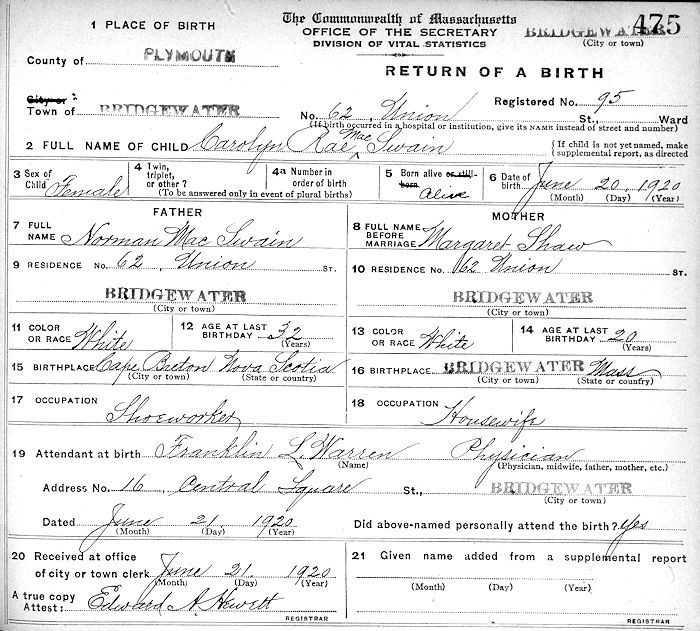 The Commonwealth of Massachusetts
OFFICE OF THE SECRETARY
DIVISION OF VITAL STATISTICS
BRIDGEWATER 475
(City or town)
RETURN OF A BIRTH
1 PLACE OF BIRTH
County of PLYMOUTH
Registered No. 95
City or
Town of BRIDGEWATER No. 62, Union St., Ward
(If birth occurred in a hospital or institution, give its NAME instead of street and number)
2 FULL NAME OF CHILD Carolyn Rae Mac Swain {If child is not yet named, make supplemental report, as directed
3 Sex of Child Female
4 Twin, triplet, or other?
4a Number in order of birth
(To be answered only in event of plural births)
5 Born alive or still-born Alive
6 Date of birth June 20, 1920
(Month) (Day) (Year)
FATHER
7 FULL NAME Norman Mac Swain
9 RESIDENCE No. 62, Union ST.
BRIDGEWATER
(City or town)
11 COLOR OR RACE White
12 AGE AT LAST BIRTHDAY 32
(Years)
15 BIRTHPLACE Cape Breton Nova Scotia
(City or town) (State or country)
17 OCCUPATION
Shoeworker
MOTHER
8 FULL NAME BEFORE MARRIAGE Margaret Shaw
10 RESIDENCE No. 62 Union ST.
BRIDGEWATER
(City or town)
13 COLOR OR RACE White
14 AGE AT LAST BIRTHDAY 20
(Years)
16 BIRTHPLACE BRIDGEWATER Mass
(City or town) (State or country)
18 OCCUPATION
Housewife
19 Attendant at birth Franklin L. Warren Physician
(Name) (Physician, midwife, father, mother, etc.)
Address No. 16, Central Square St., BRIDGEWATER
(City or town)
Dated June 21, 1920 Did above-named personally attend the birth? Yes
(Month) (Day) (Year)
20 Received at office of city or town clerk June 21 1920
(Month) (Day) (Year)
A true copy
Attest: Edward A. Hewett
REGISTRAR
21 Given name added from a supplemental report
(Month) (Day) (Year)
REGISTRAR